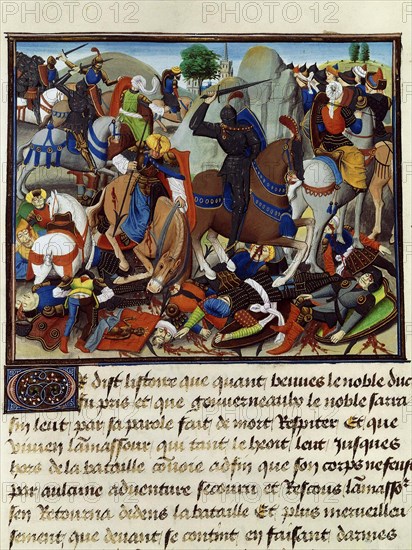 Or dist listoire que quant beuues le noble duc
fu pris et que gouuerneaulx le noble sarra
sin leut par sa parole fait de mort Respiter Et que
viuien lamassour qui tant le heoit leut Jusques
hors de la bataille conuoie adfin que son corps ne feust
par aulcune aduenture secouru et Rescous lamassor
sen Retourna dedens la bataille Et plus merueilleu
sement que deuant se contint en faisant darmes